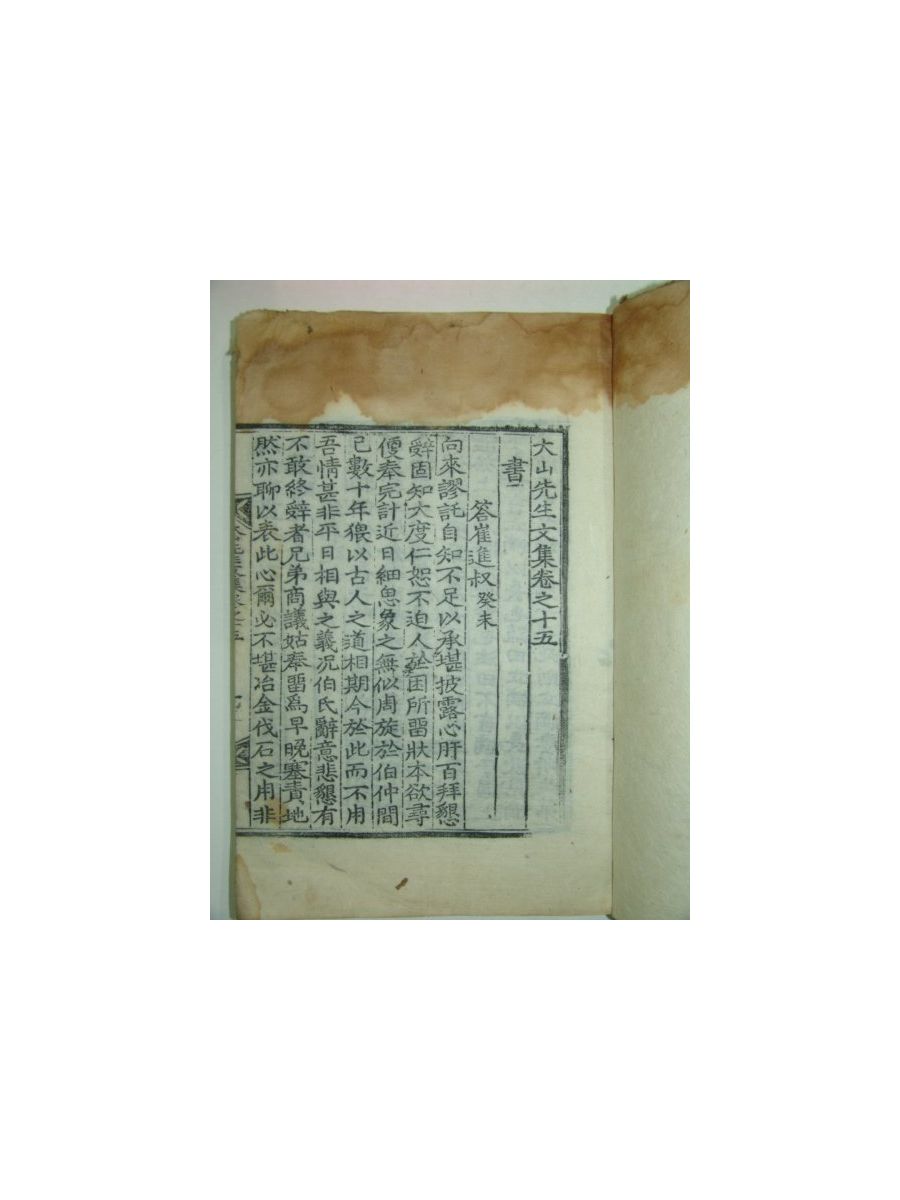 大山先生文集卷之十五
書
答崔進叔 癸未
向來謬託自知不足以承堪披露心肝百拜懇
辭固知大度仁恕不迫人於困所留狀本欲尋
便奉完計近日細思象之無似周旋於伯仲間
已數十年猥以古人之道相期今於此而不用
吾情甚非平日相與之義况伯氏辭意悲懇有
不敢終辭者兄弟商議姑奉留爲早晩塞責地
然亦聊以表此心爾必不堪冶金伐石之用非